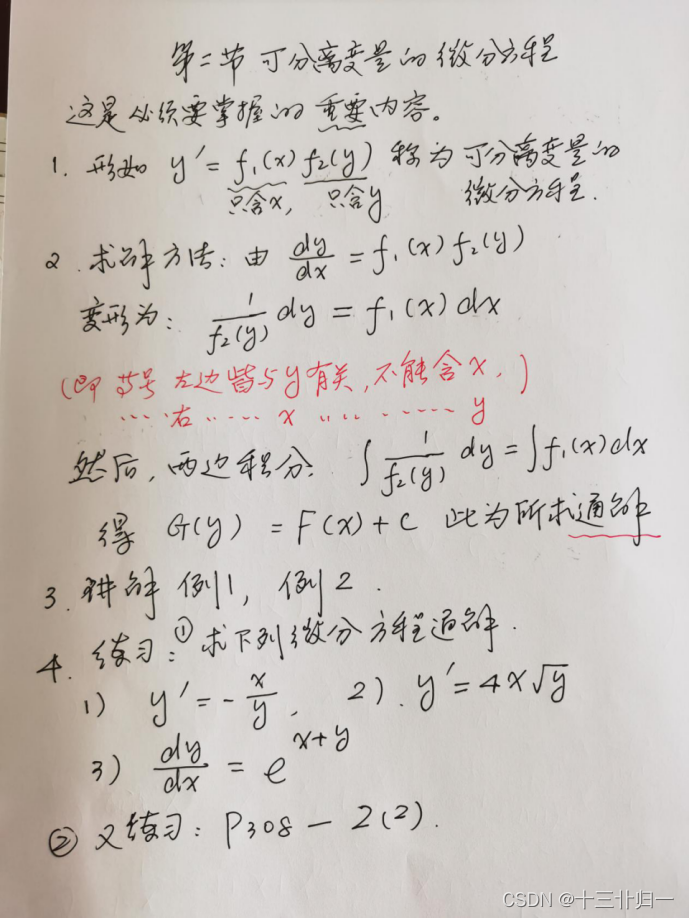 第二节 可分离变量的微分方程
这是必须要掌握的重要内容。
1. 形如 y′ = f₁(x) f₂(y) 称为可分离变量的
只含x, 只含y 微分方程.
2. 求解方法: 由 dy/dx = f₁(x) f₂(y)
变形为: 1/f₂(y) dy = f₁(x) dx
(即等号左边皆与y有关, 不能含x,)
…… 右 …… x …… …… y
然后, 两边积分: ∫ 1/f₂(y) dy = ∫ f₁(x) dx
得 G(y) = F(x) + C 此为所求通解
3. 讲解 例1, 例2.
4. 练习: ① 求下列微分方程通解.
1) y′ = - x/y, 2). y′ = 4x√y
3) dy/dx = e^{x+y}
② 又练习: P308 — 2(2).
CSDN @十三卝归一